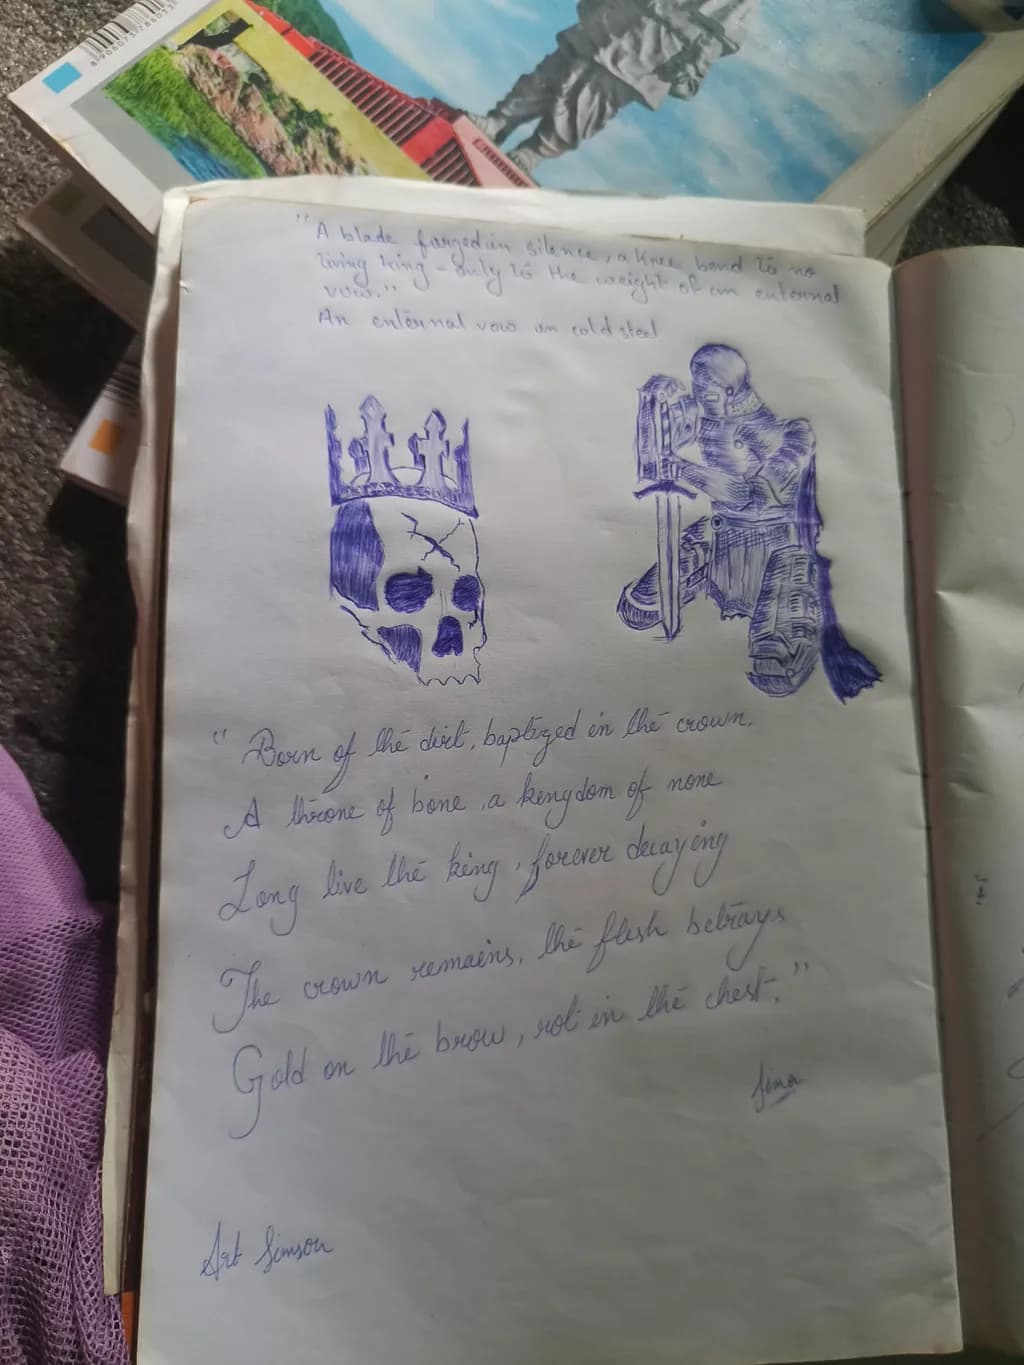 8906073786053
"A blade forged in silence, a knee bend to no
living king - only to the weight of an enternal
vow."
An enternal vow on cold steel
"Born of the dirt, baptized in the crown.
A throne of bone, a kingdom of none
Long live the king, forever decaying
The crown remains, the flesh betrays
Gold on the brow, rot in the chest."
Art Simson